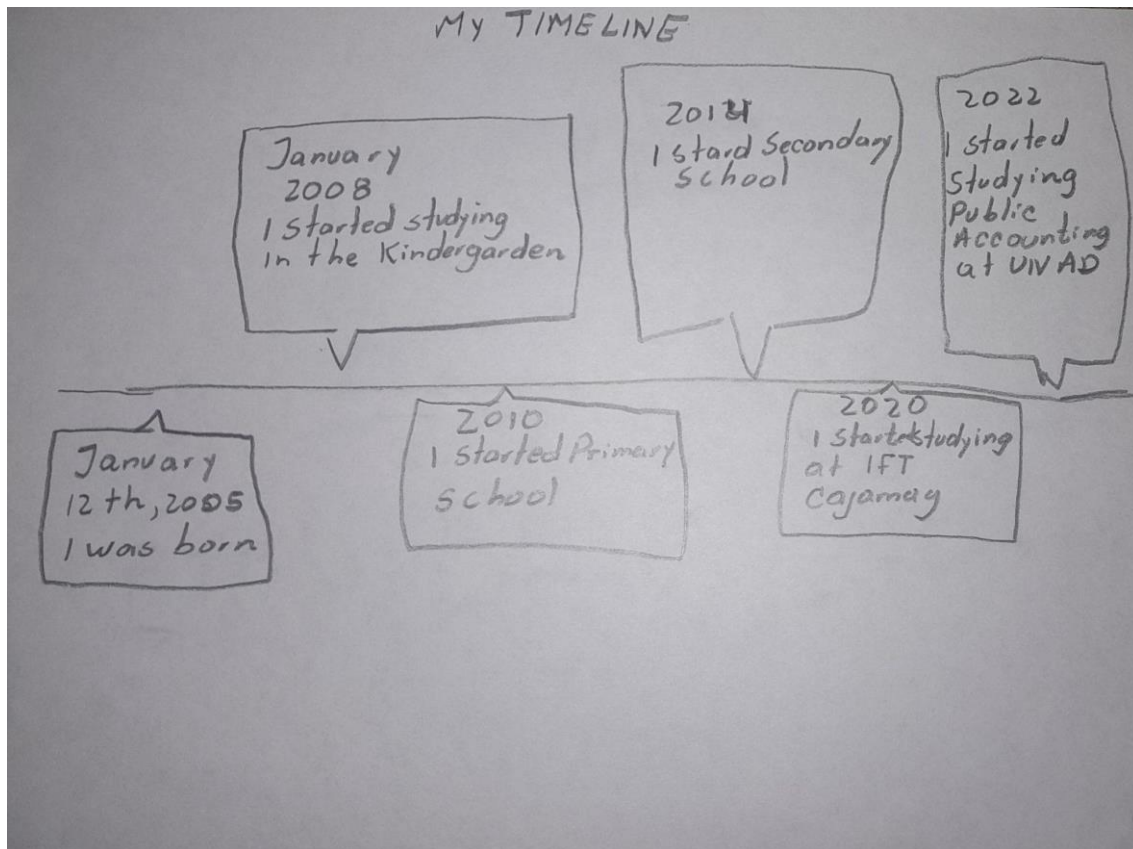 My TIMELINE
January
12th, 2005
I was born
January
2008
I started studying
in the Kindergarden
2010
I started Primary
school
2014
I stard Secondary
school
2020
I started studying
at IFT
Cajamag
2022
I started
Studying
Public
Accounting
at UNAD